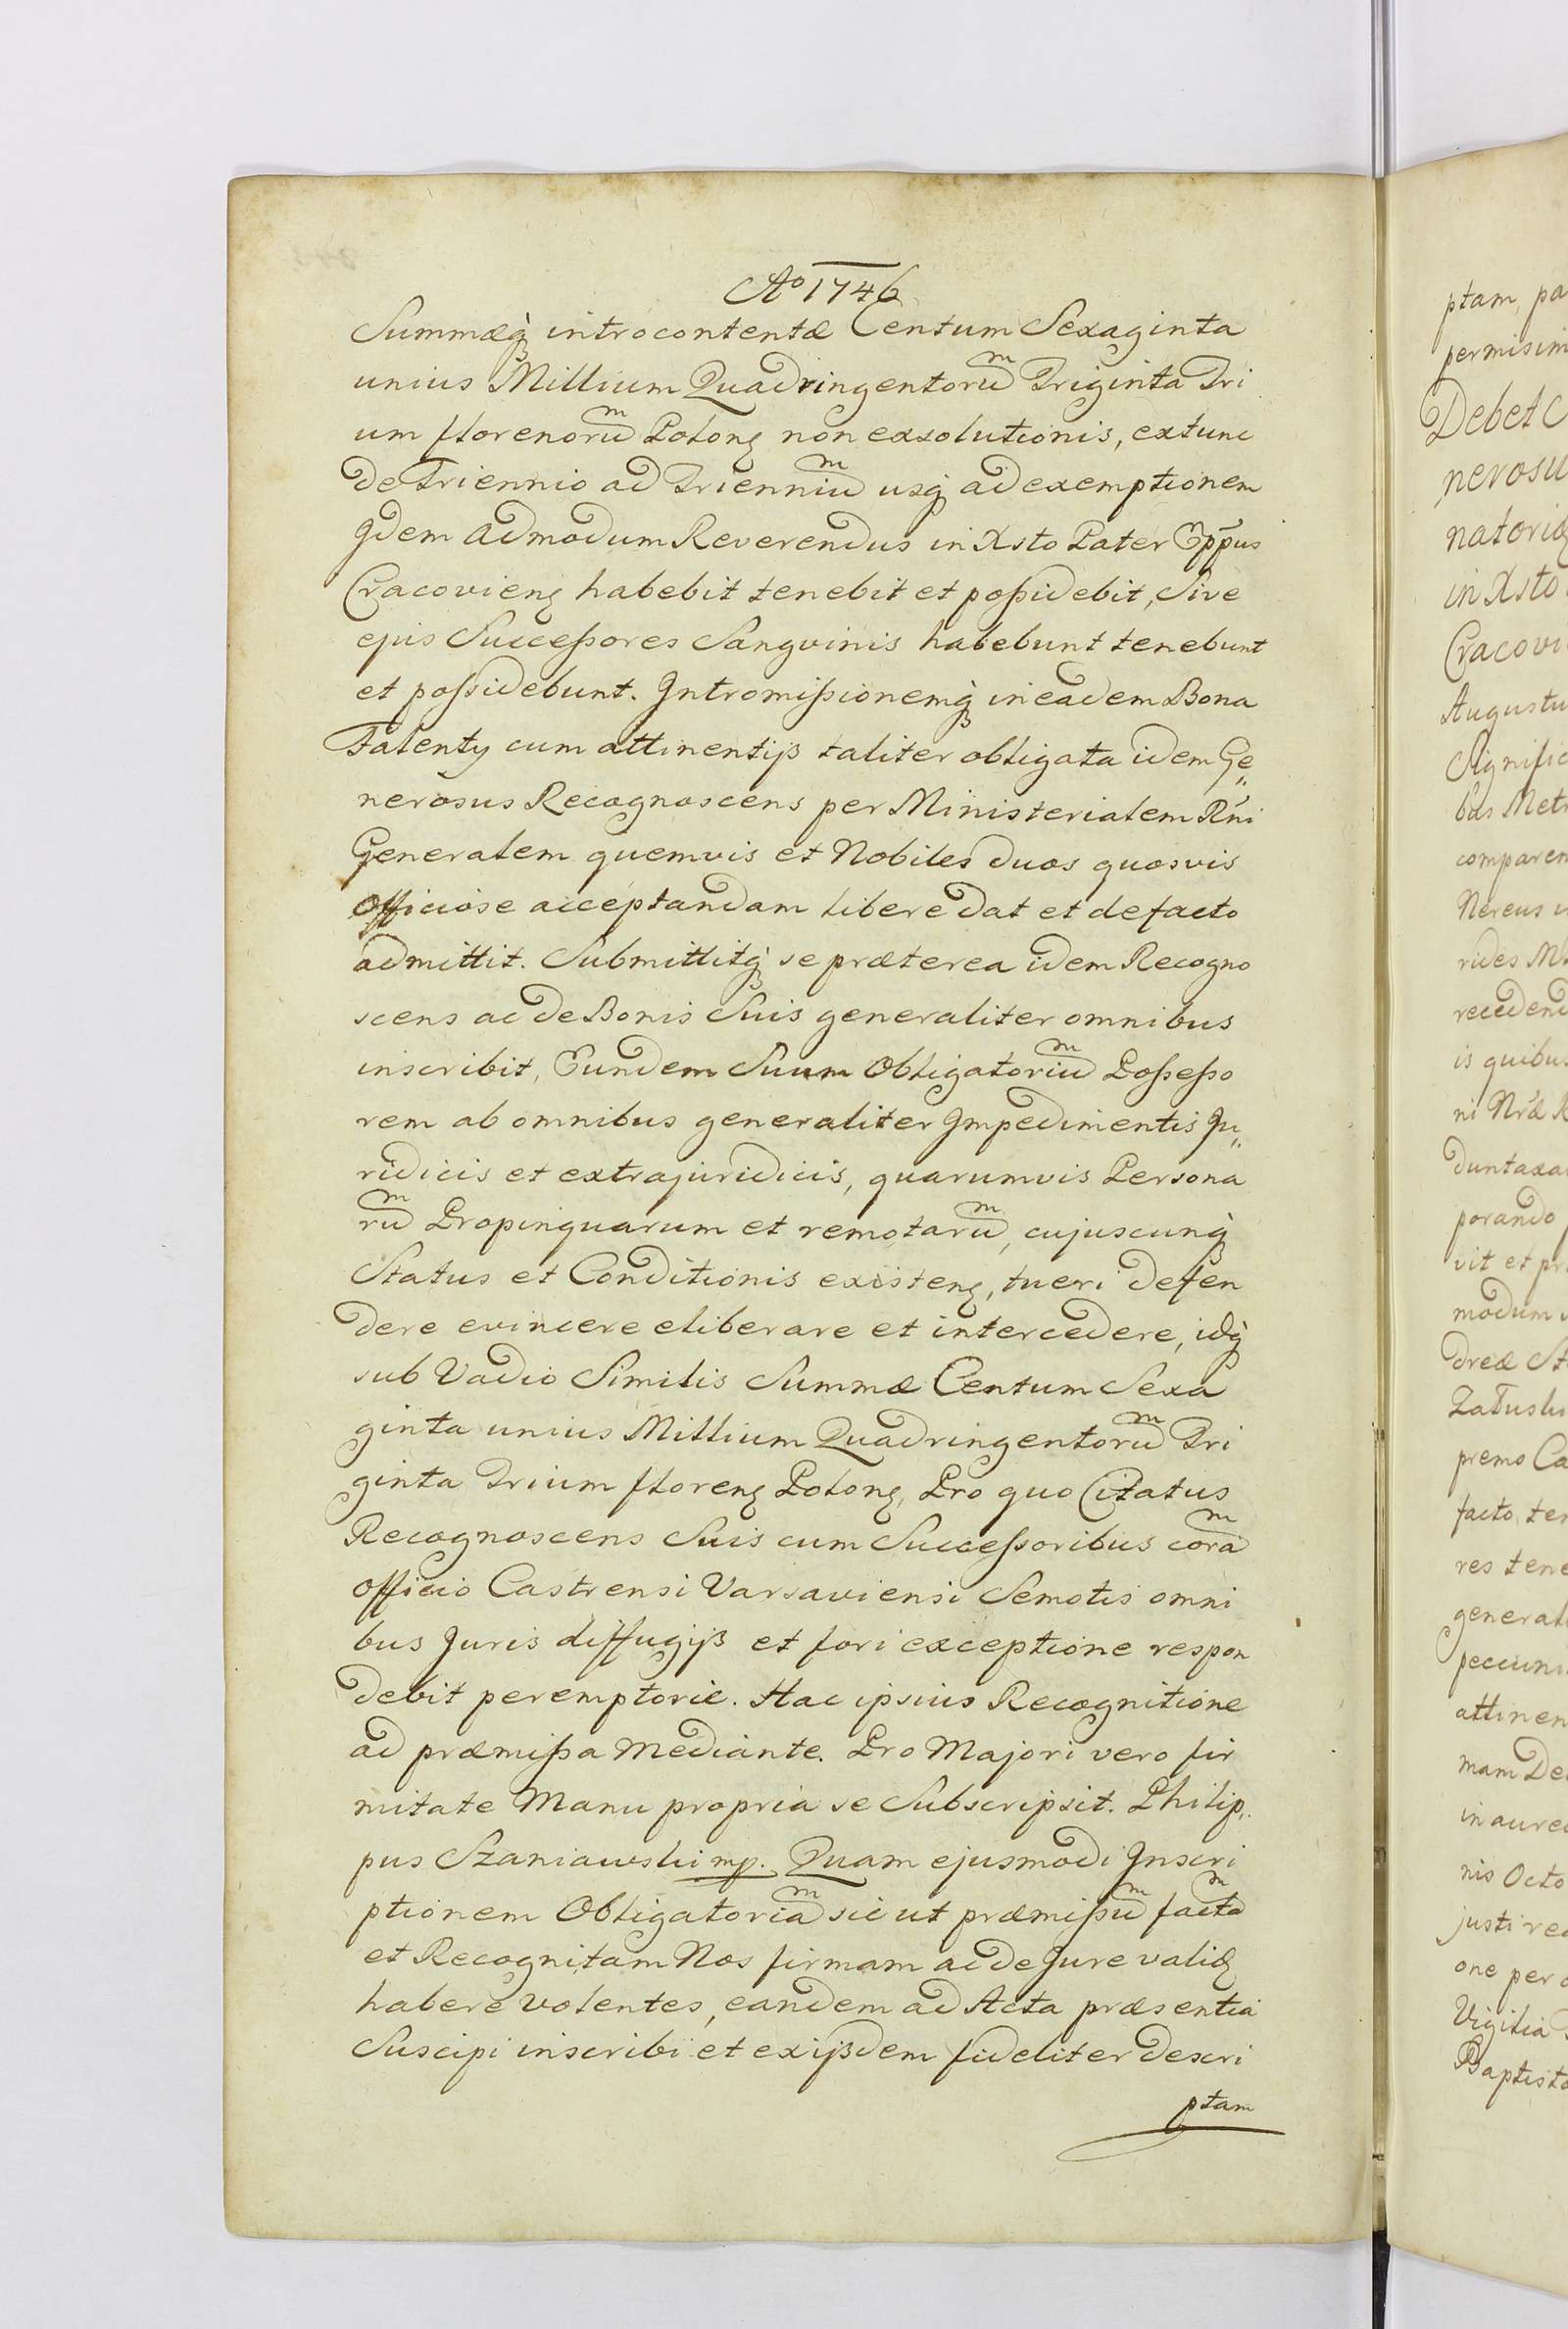 Aº 1746
Summæq̀ꝫ introcontentæ Centum Sexaginta
unius Millium Quadringentorũᵐ Triginta Tri
um florenorũᵐ Polonꝫ non exsolutionis, extunc
de Triennio ad Trienniũᵐ usq̀ꝫ ad exemptionem
Jdem Admodum Reverendus in Xsto Pater Epp̃us
Cracovienꝫ habebit tenebit et poßidebit, Sive
ejus Succeßores Sangvinis habebunt tenebunt
et poßidebunt. Jntromißionemq̀ꝫ in eadem Bona
Talenty cum attinentijs taliter obligata idem Ge„
nerosus Recognoscens per Ministerialem R̃ni
Generalem quemvis et Nobiles duos quosvis
officiose acceptandam libere dat et defacto
admittit. Submittitq̀ꝫ se præterea idem Recogno
scens ac de Bonis Suis generaliter omnibus
inscribit, Eundem Suum Obligatoriũᵐ Poßeßo
rem ab omnibus generaliter Jmpedimentis Ju„
ridicis et extrajuridicis, quarumvis Persona
rũᵐ Propinquarum et remotarũᵐ, cujuscunq̀ꝫ
Status et Conditionis existenꝫ, tueri defen
dere evincere eliberare et intercedere, idq̀ꝫ
sub Vadio Similis Summæ Centum Sexa
ginta unius Millium Quadringentorũᵐ Tri
ginta Trium florenꝫ Polonꝫ, Pro quo Citatus
Recognoscens Suis cum Succeßoribus corãᵐ
officio Castrensi Varsaviensi Semotis omni
bus Juris diffugijs et fori exceptione respon
debit peremptorie. Hac ipsius Recognitione
ad præmißa Mediante. Pro Majori vero fir
mitate Manu propria se Subscripsit. Philip„
pus Szaniawski mp. Quam ejusmodi Jnscri
ptionem Obligatoriãᵐ sic ut præmißũᵐ factãᵐ
et Recognitam Nos firmam ac de Jure validꝫ
habere volentes, eandem ad Acta præsentia
Suscipi inscribi et ex ijsdem fideliter descri
ptam
ptam, pa
permisim
Debet C
nerosu
natoriæ
in Xsto
Cracovi
Augustu
Signific
bus Metr
comparen
Nereus
rides
recedend
is quibus
ni Nræ
duntaxa
porando
vit et pr
modum
dreæ St
Załuski
premo Ca
facto, ter
res tene
general
pecuni
attinen
mam De
in aure
nis Octo
justi re
one per
Vigilia
Baptista